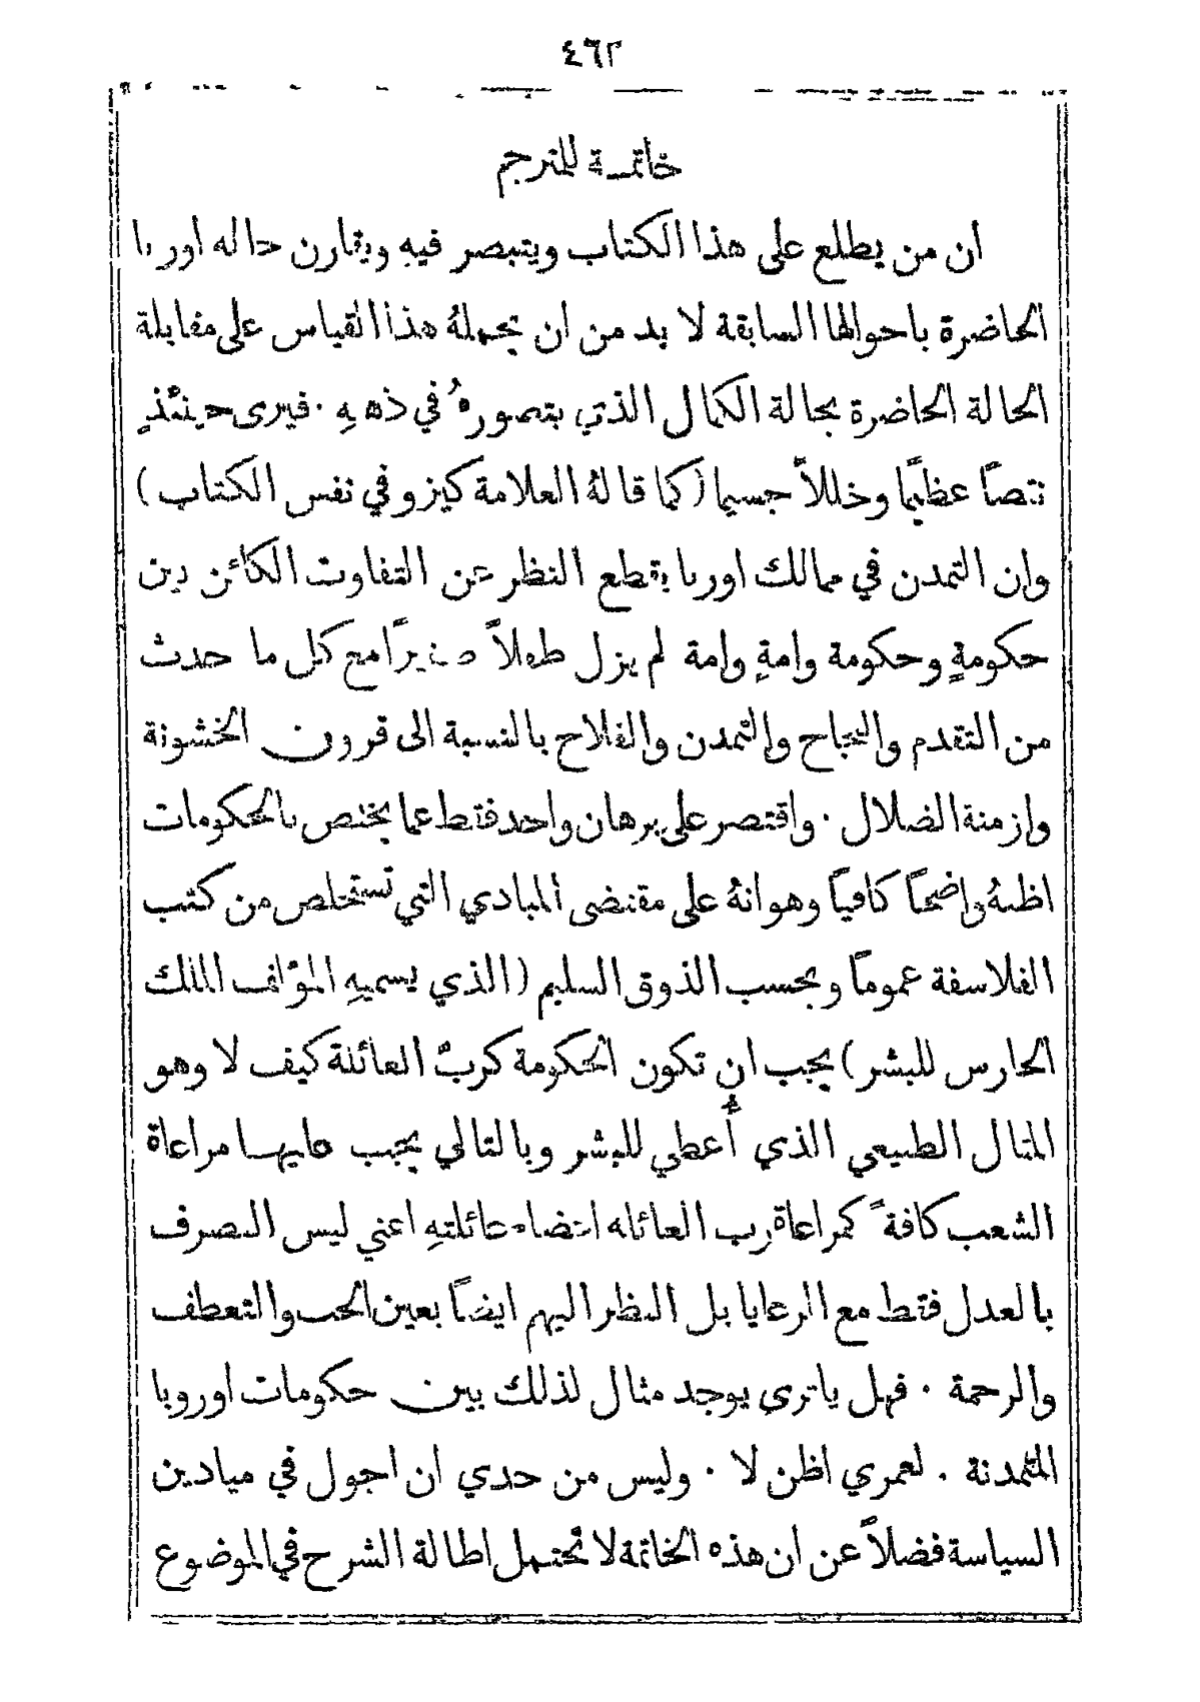 ٤٦٢
خاتمة للمترجم
ان من يطلع على هذا الكتاب ويتبصر فيهِ ويقارن حاله اوربا
الحاضرة باحوالها السابقة لا بد من ان يحملهُ هذا القياس على مقابلة
الحالة الحاضرة بحالة الكمال الذي يتصورهُ في ذهنهِ ٠ فيرى حينئذٍ
نقصاً عظيماً وخللاً جسيما (كما قالهُ العلامة كيزو في نفس الكتاب)
وان التمدن في ممالك اوربا بقطع النظر عن التفاوت الكائن بين
حكومةٍ وحكومة وامةٍ وامة لم يزل طفلاً صغيراً مع كل ما حدث
من التقدم والنجاح والتمدن والفلاح بالنسبة الى قرون الخشونة
وازمنة الضلال ٠ واقتصر على برهان واحد فقط عما يختص بالحكومات
اظنهُ واضحاً كافياً وهو انهُ على مقتضى المبادي التي تستخلص من كتب
الفلاسفة عموماً وبحسب الذوق السليم (الذي يسميهِ المؤلف الملك
الحارس للبشر) يجب ان تكون الحكومة كربّ العائلة كيف لا وهو
المثال الطبيعي الذي أُعطي للبشر وبالتالي يجب عليها مراعاة
الشعب كافةً كمراعاة رب العائله اعضاء عائلتهِ اعني ليس التصرف
بالعدل فقط مع الرعايا بل النظر اليهم ايضاً بعين الحب والتعطف
والرحمة ٠ فهل يا ترى يوجد مثال لذلك بين حكومات اوروبا
المتمدنة ٠ لعمري اظن لا ٠ وليس من حدي ان اجول في ميادين
السياسة فضلاً عن ان هذه الخاتمة لا تحتمل اطالة الشرح في الموضوع